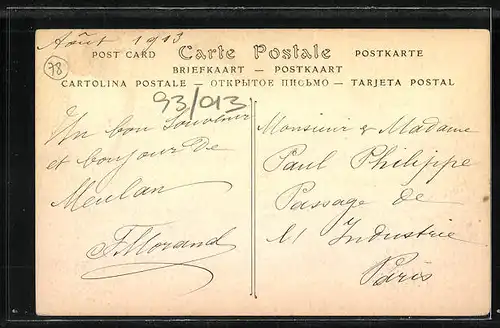 Août 1913
POST CARD Carte Postale POSTKARTE
BRIEFKAART — POSTKAART
CARTOLINA POSTALE — ОТКРЫТОЕ ПИСЬМО — TARJETA POSTAL
78
93/013
Un bon Souvenir
et bonjour de
Meulan
F. Morand
Monsieur & Madame
Paul Philippe
Passage de
l'Industrie
Paris